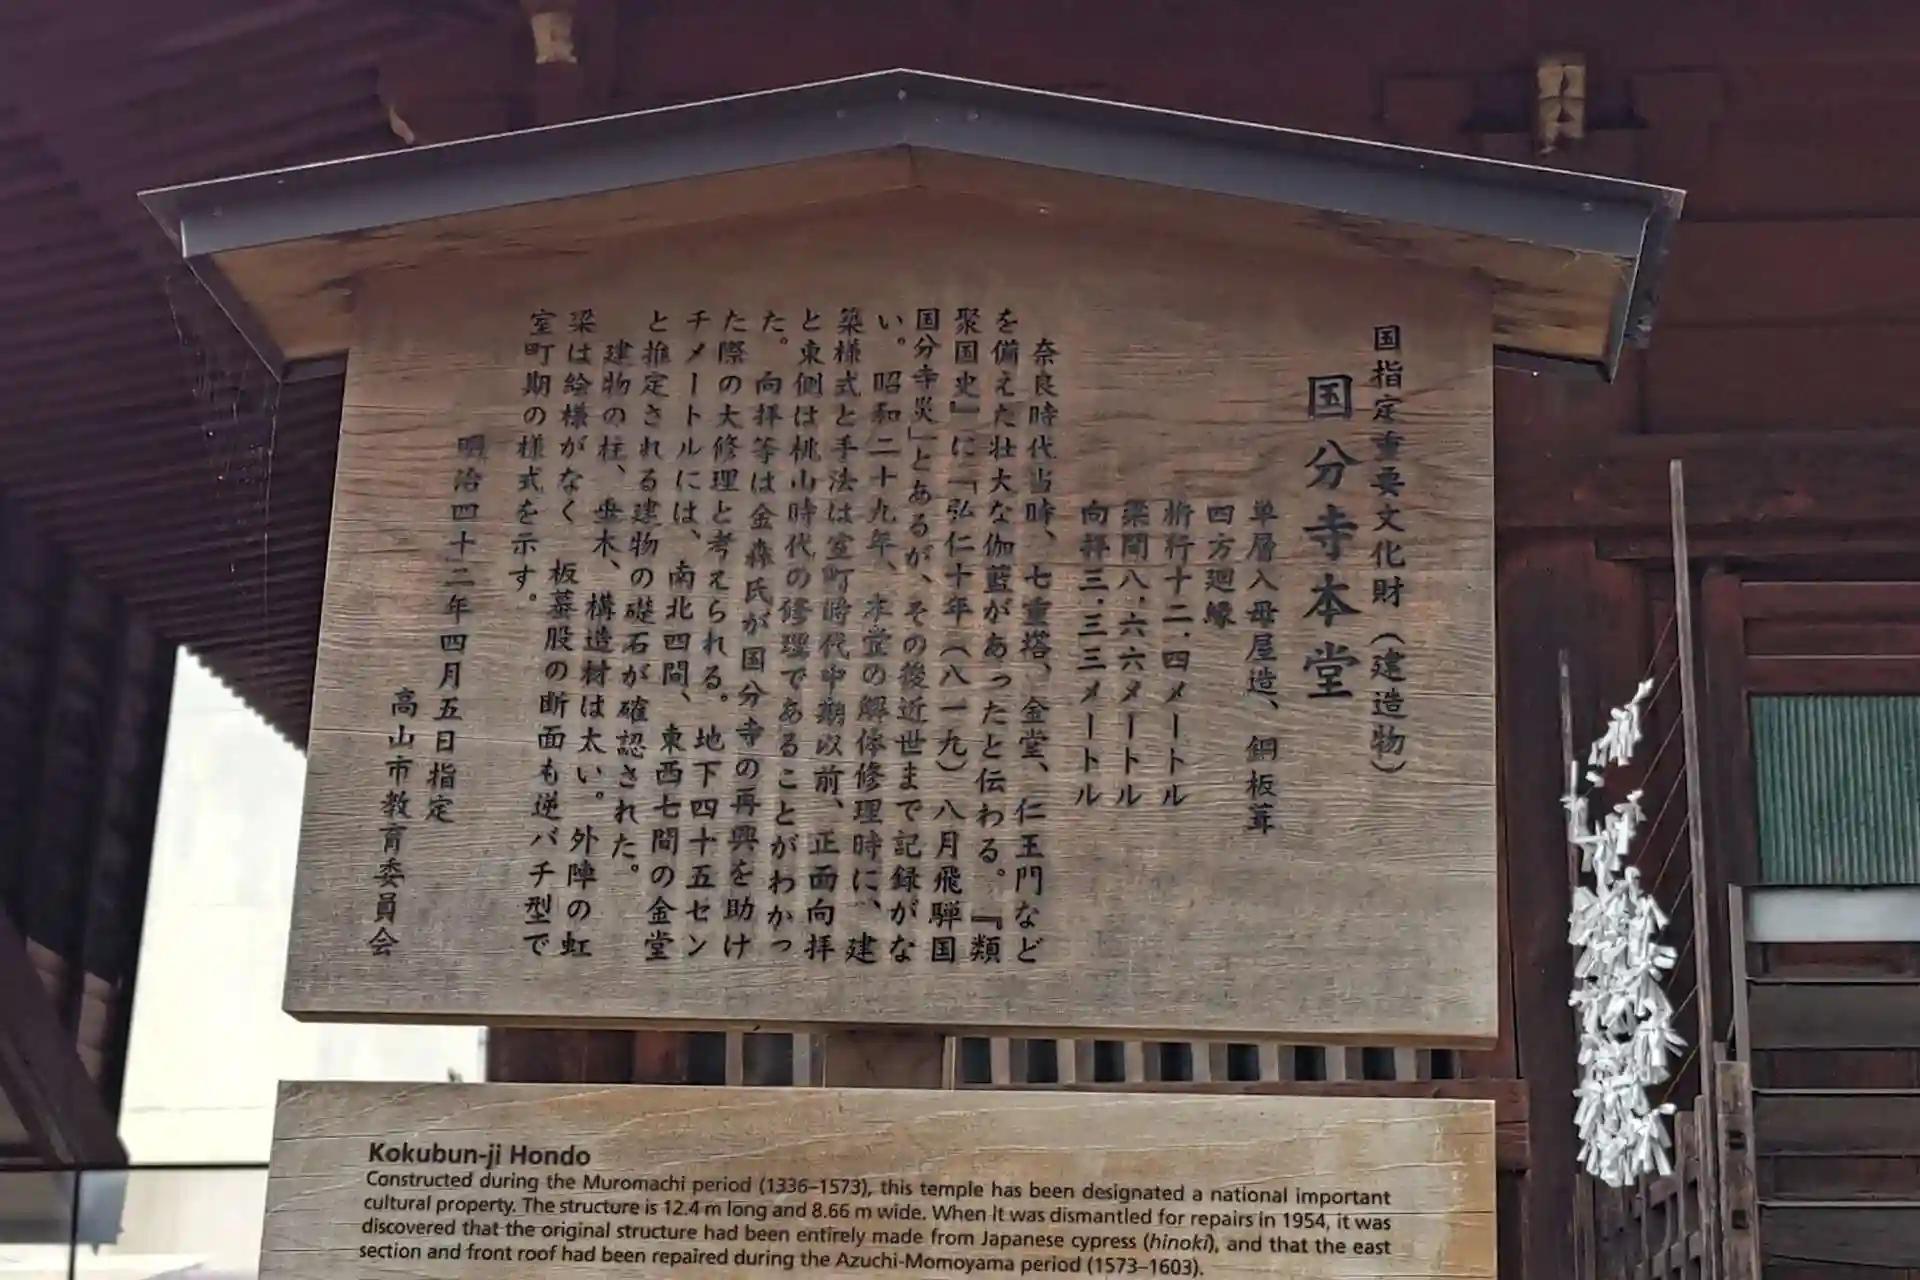 国指定重要文化財（建造物）
国分寺本堂
単層入母屋造、銅板葺
四方廻縁
桁行十二．四メートル
梁間八．六六メートル
向拝三．三三メートル
奈良時代当時、七重塔、金堂、仁王門など
を備えた壮大な伽藍があったと伝わる。『類
聚国史』に「弘仁十年（八一九）八月飛騨国
国分寺災」とあるが、その後近世まで記録がな
い。昭和二十九年、本堂の解体修理時に、建
築様式と手法は室町時代中期以前、正面向拝
と東側は桃山時代の修理であることがわかっ
た。向拝等は金森氏が国分寺の再興を助け
た際の大修理と考えられる。地下四十五セン
チメートルには、南北四間、東西七間の金堂
と推定される建物の礎石が確認された。
建物の柱、垂木、構造材は太い。外陣の虹
梁は絵様がなく 板蟇股の断面も逆バチ型で
室町期の様式を示す。
明治四十二年四月五日指定
高山市教育委員会
Kokubun-ji Hondo
Constructed during the Muromachi period (1336–1573), this temple has been designated a national important
cultural property. The structure is 12.4 m long and 8.66 m wide. When it was dismantled for repairs in 1954, it was
discovered that the original structure had been entirely made from Japanese cypress (hinoki), and that the east
section and front roof had been repaired during the Azuchi-Momoyama period (1573–1603).